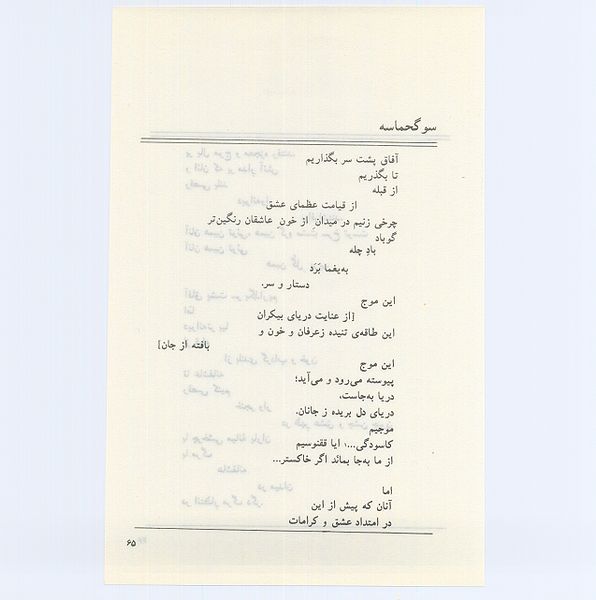 سوگحماسه
آفاق پشت سر بگذاریم
تا بگذریم
از قبله
از قیامت عظمای عشق
چرخی زنیم در میدان از خونِ عاشقان رنگین‌تر
گوباد
بادِ چله
به‌یغما بَرَد
دستار و سر.
این موج
[از عنایت دریای بیکران
این طاقه‌ی تنیده ززعرفان و خون و
بافته از جان]
این موج
پیوسته می‌رود و می‌آید؛
دریا به‌جاست.
دریای دل بریده ز جانان.
موجیم
کاسودگی...؛ ایا ققنوسیم
از ما به‌جا بماند اگر خاکستر...
اما
آنان که پیش از این
در امتداد عشق و کرامات
۶۵